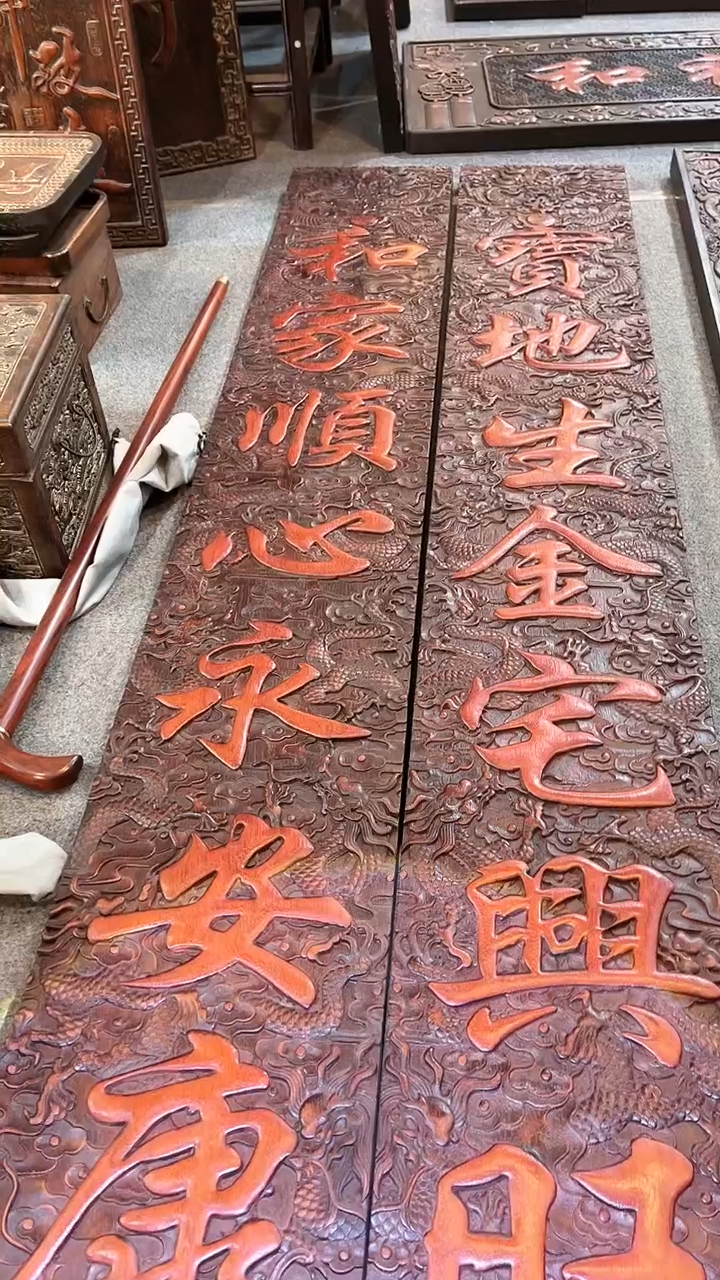 寶地生金宅興旺
和家順心永安康
和